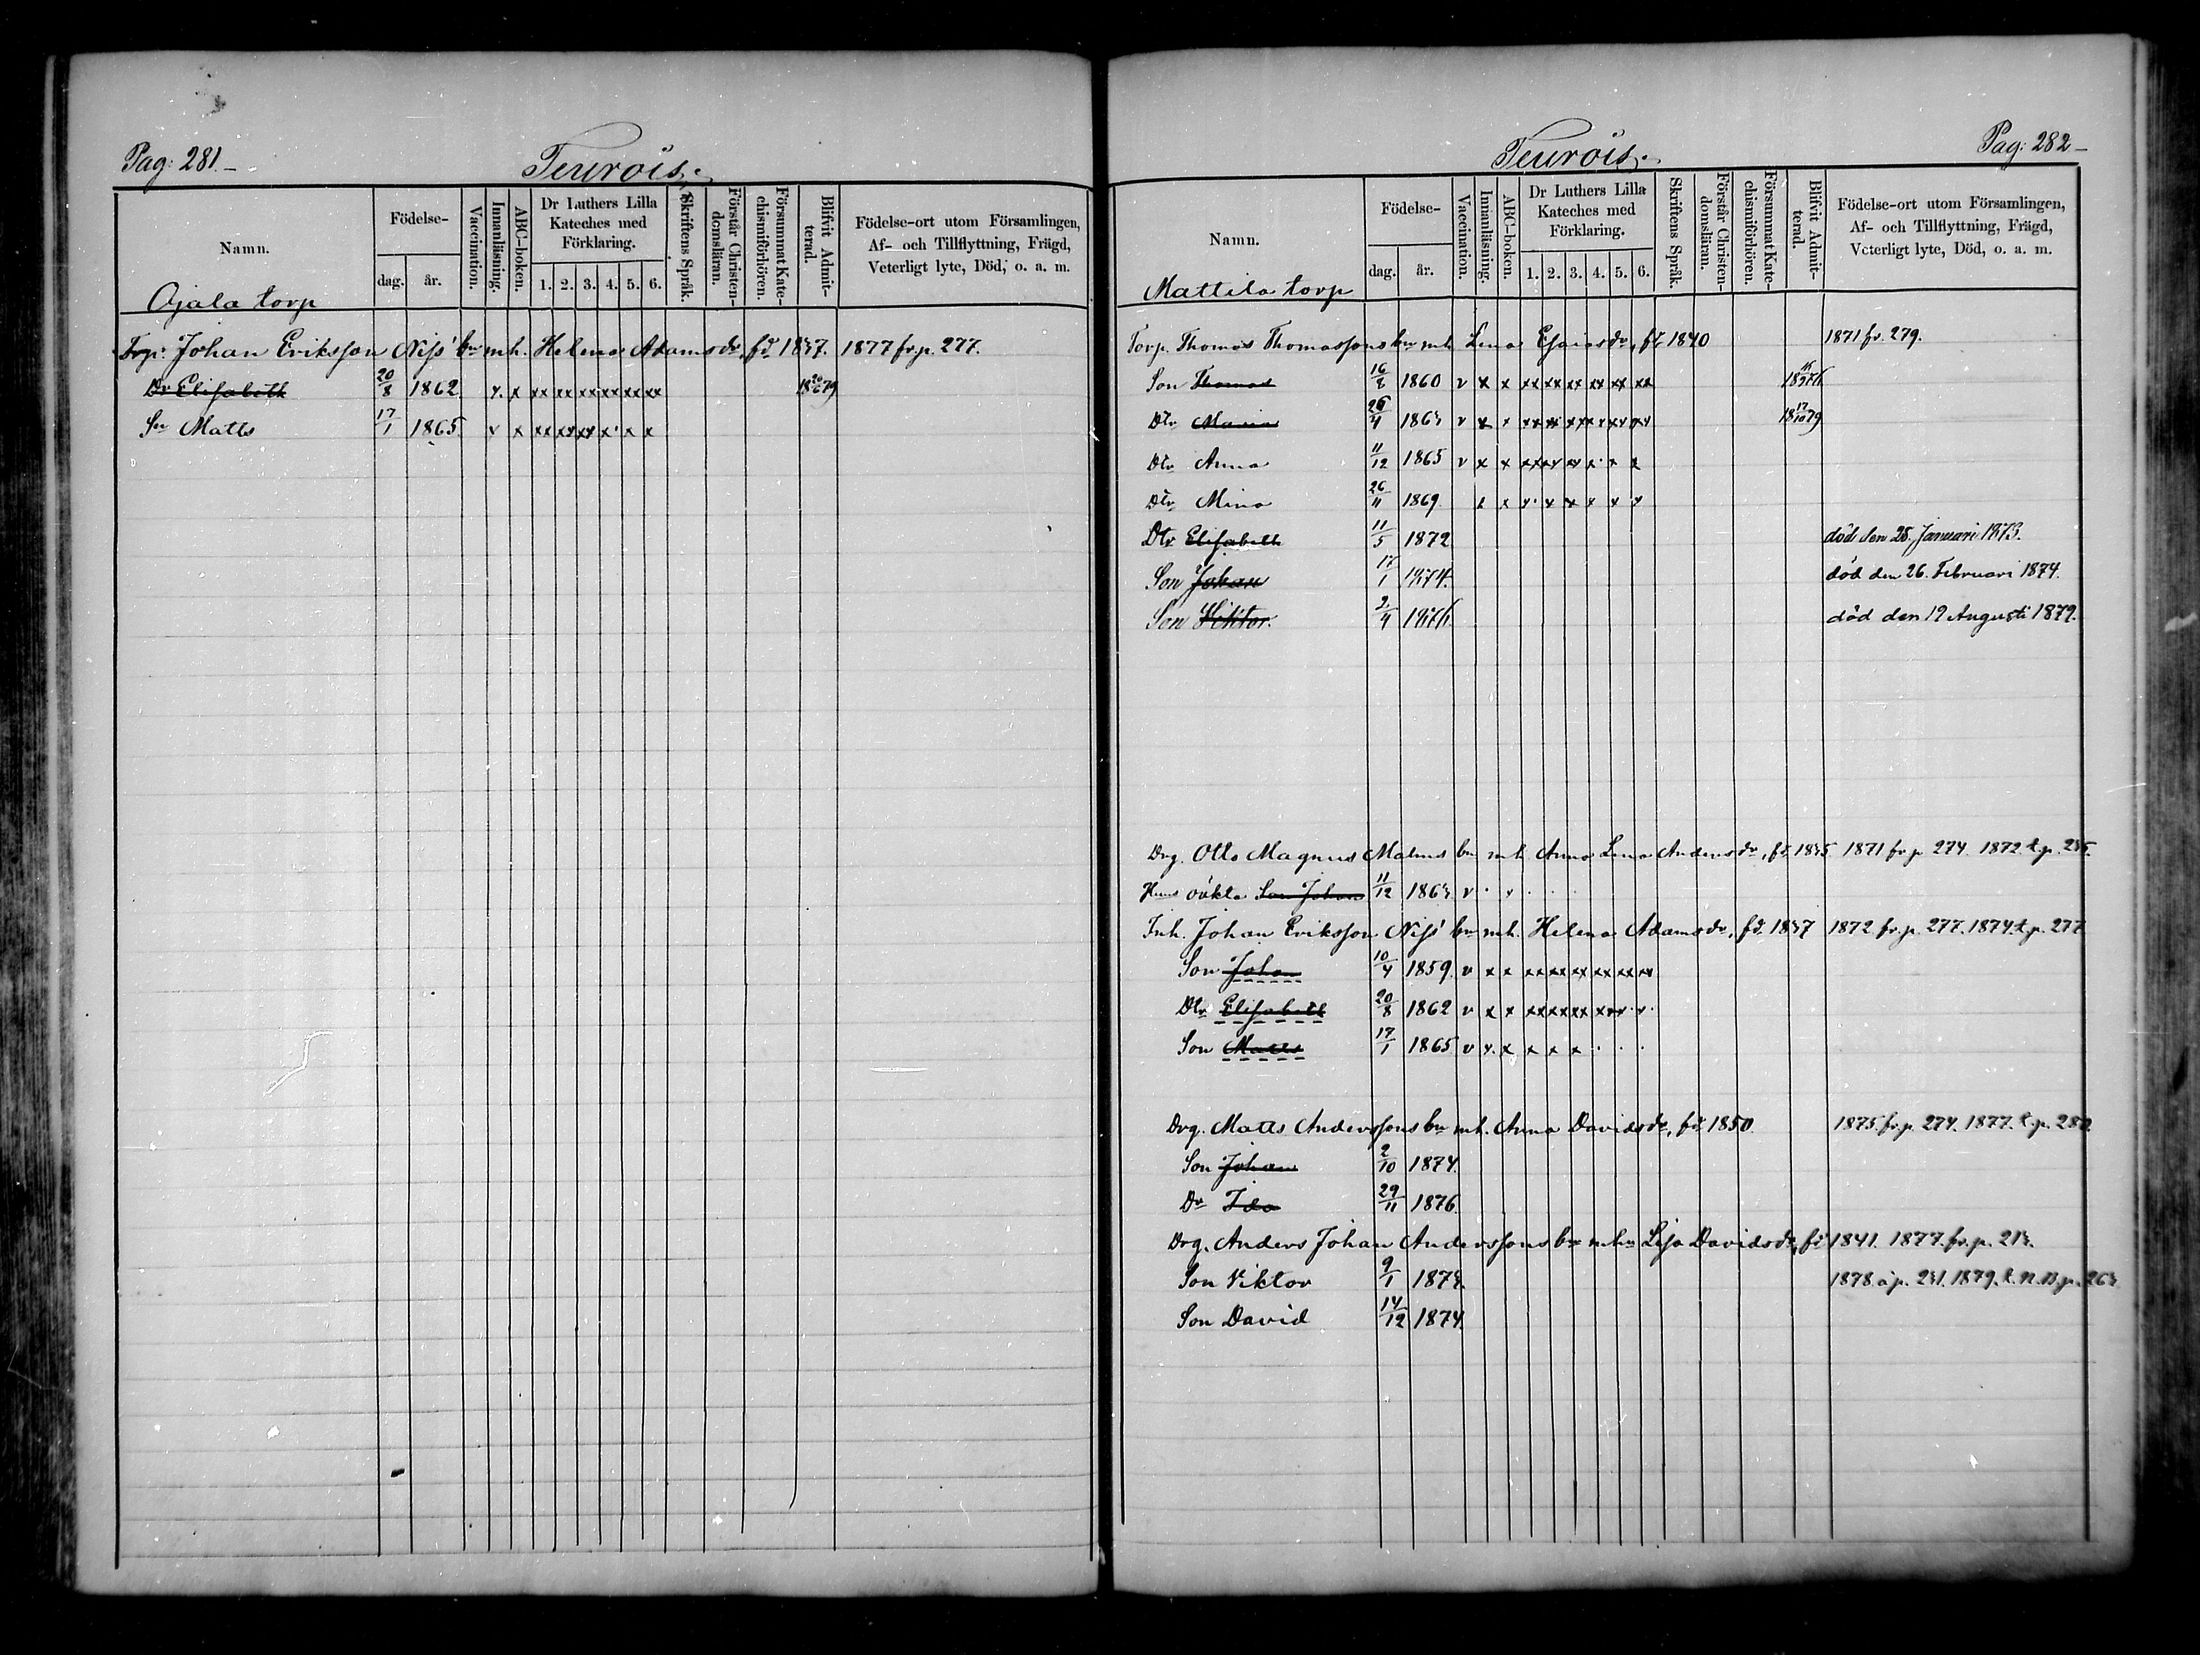 Pag: 281.
Teurois.
Namn.
Födelse-
dag. år.
Vaccination.
Innanläsning.
ABC-boken.
Dr Luthers Lilla Kateches med Förklaring.
1. 2. 3. 4. 5. 6.
Skriftens Språk.
Förstår Christendomsläran.
Försummat Katechismiförhören.
Blifvit Admitterad.
Födelse-ort utom Församlingen,
Af- och Tillflyttning, Frägd,
Veterligt lyte, Död, o. a. m.
Ojala torp
Torp. Johan Eriksson Nissi bn mh. Helena Adamsdr, fd 1837. 1877 fr p. 277.
Dr Elisabeth 20/8 1862 v. x xx xx xx xx xx xx
Sn Matts 17/1 1865 v x xx xx xx x x x
Pag: 282
Teurois.
Namn.
Födelse-
dag. år.
Vaccination.
Innanläsning.
ABC-boken.
Dr Luthers Lilla Kateches med Förklaring.
1. 2. 3. 4. 5. 6.
Skriftens Språk.
Förstår Christendomsläran.
Försummat Katechismiförhören.
Blifvit Admitterad.
Födelse-ort utom Församlingen,
Af- och Tillflyttning, Frägd,
Veterligt lyte, Död, o. a. m.
Mattila torp
Torp. Thomas Thomassons bn mh Lena Esaiasdr, fd 1840 1871 fr. 279.
Son Thomas 16/8 1860 v x x xx xx xx xx xx xx
Dtr Maria 26/4 1863 v x x xx xx xx xx xx xx
Dtr Anna 11/12 1865 v x x xx xx xx x x x
Dtr Mina 26/11 1869 x x x x x x x x
Dtr Elisabeth 11/5 1872 död den 28. Januari 1873.
Son Johan 17/1 1874. död den 26. Februari 1874.
Son Viktor. 2/4 1876. död den 19 Augusti 1879.
Drg. Otto Magnus Malms bn mh Anna Lena Andersdr, fd 1835 1871 fr p 274. 1872 t. p.
Hans oäkta Son Johan 11/12 1863 v
Inh. Johan Eriksson Nissi bn mh. Helena Adamsdr, fd. 1837 1872 fr. p. 277. 1874 t. p. 277
Son Johan 10/4 1859 v x x xx xx xx xx xx xx
Dtr Elisabeth 20/8 1862 v x x xx xx xx xx x
Son Matts 17/1 1865 v v. x x x x
Drg. Matts Anderssons bn mh. Anna Davidsdr, fd 1850 1875. fr. p. 274. 1877. t. p.
Son Johan 2/10 1874.
Dr Ida 29/11 1876.
Drg. Anders Johan Anderssons bn mhu Lisa Davidsdr, fd 1841. 1877. fr. p.
Son Viktor 9/1 1873. 1878. å p. 231. 1879. t. N. B. p. 263
Son David 14/12 1874.